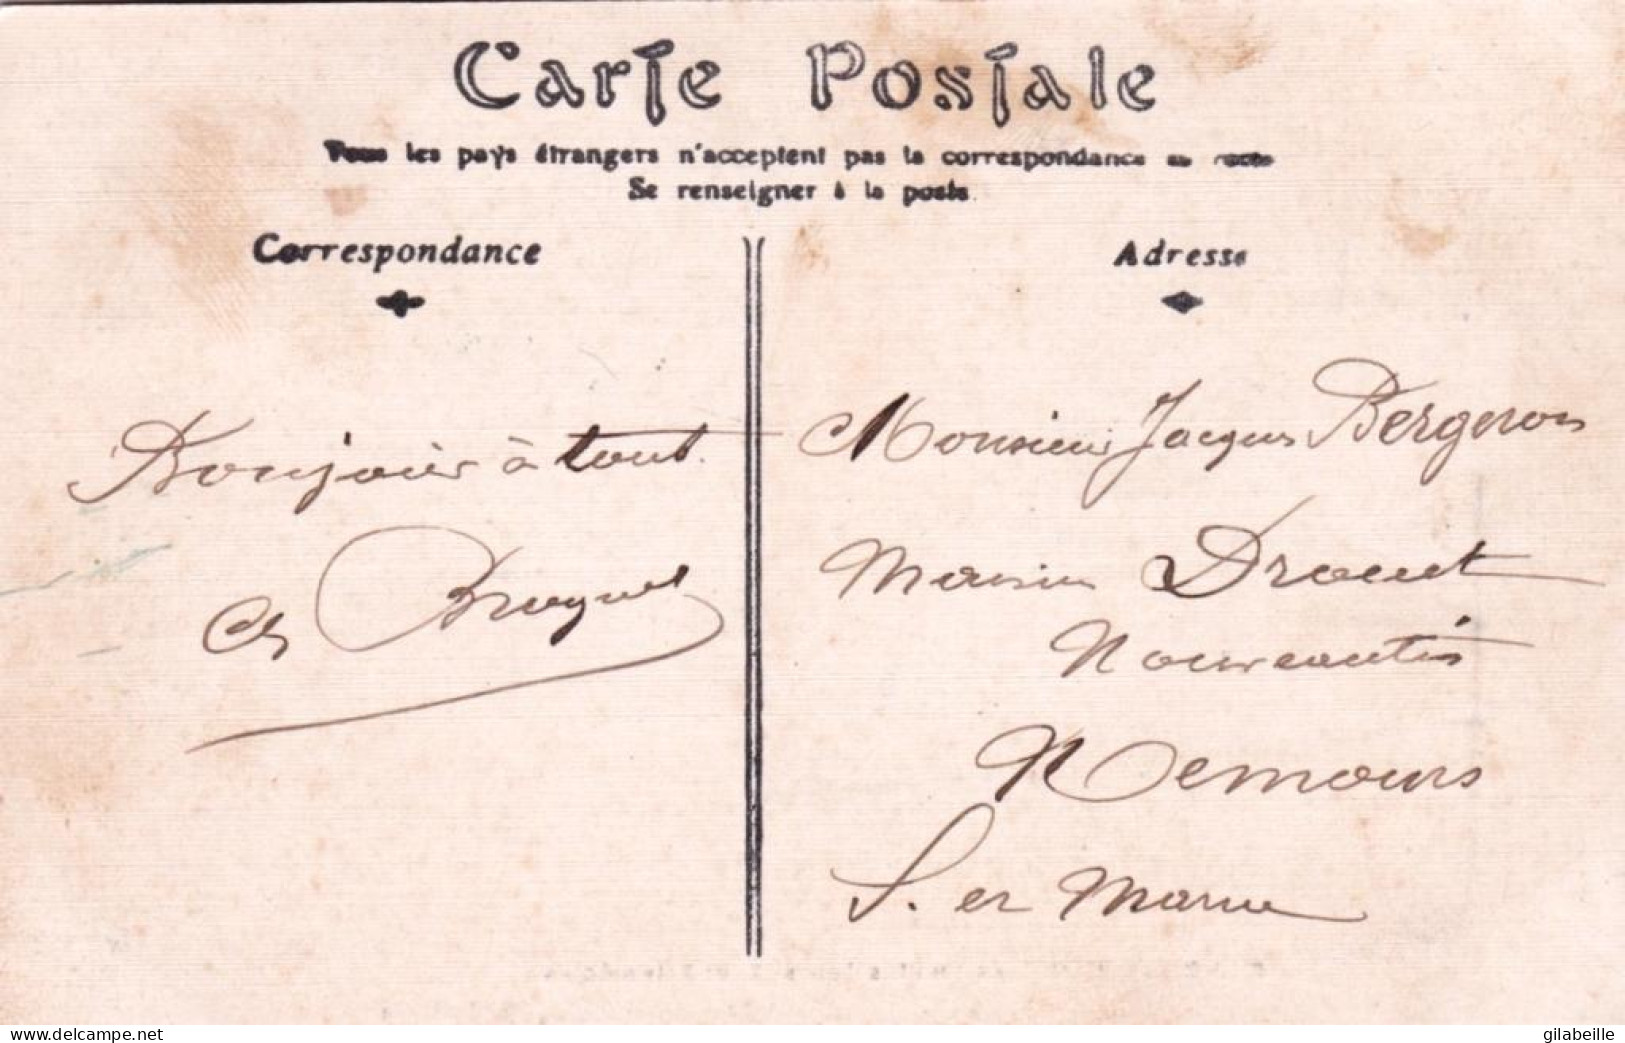 Carte Postale
Tous les pays étrangers n'acceptent pas la correspondance au recto
Se renseigner à la poste
Correspondance
Adresse
Bonjour à tout
Ch
Monsieur Jacques Bergeron
Maison Drouet
Nouveautés
Nemours
S. et Marne
www.delcampe.net
gilabeille